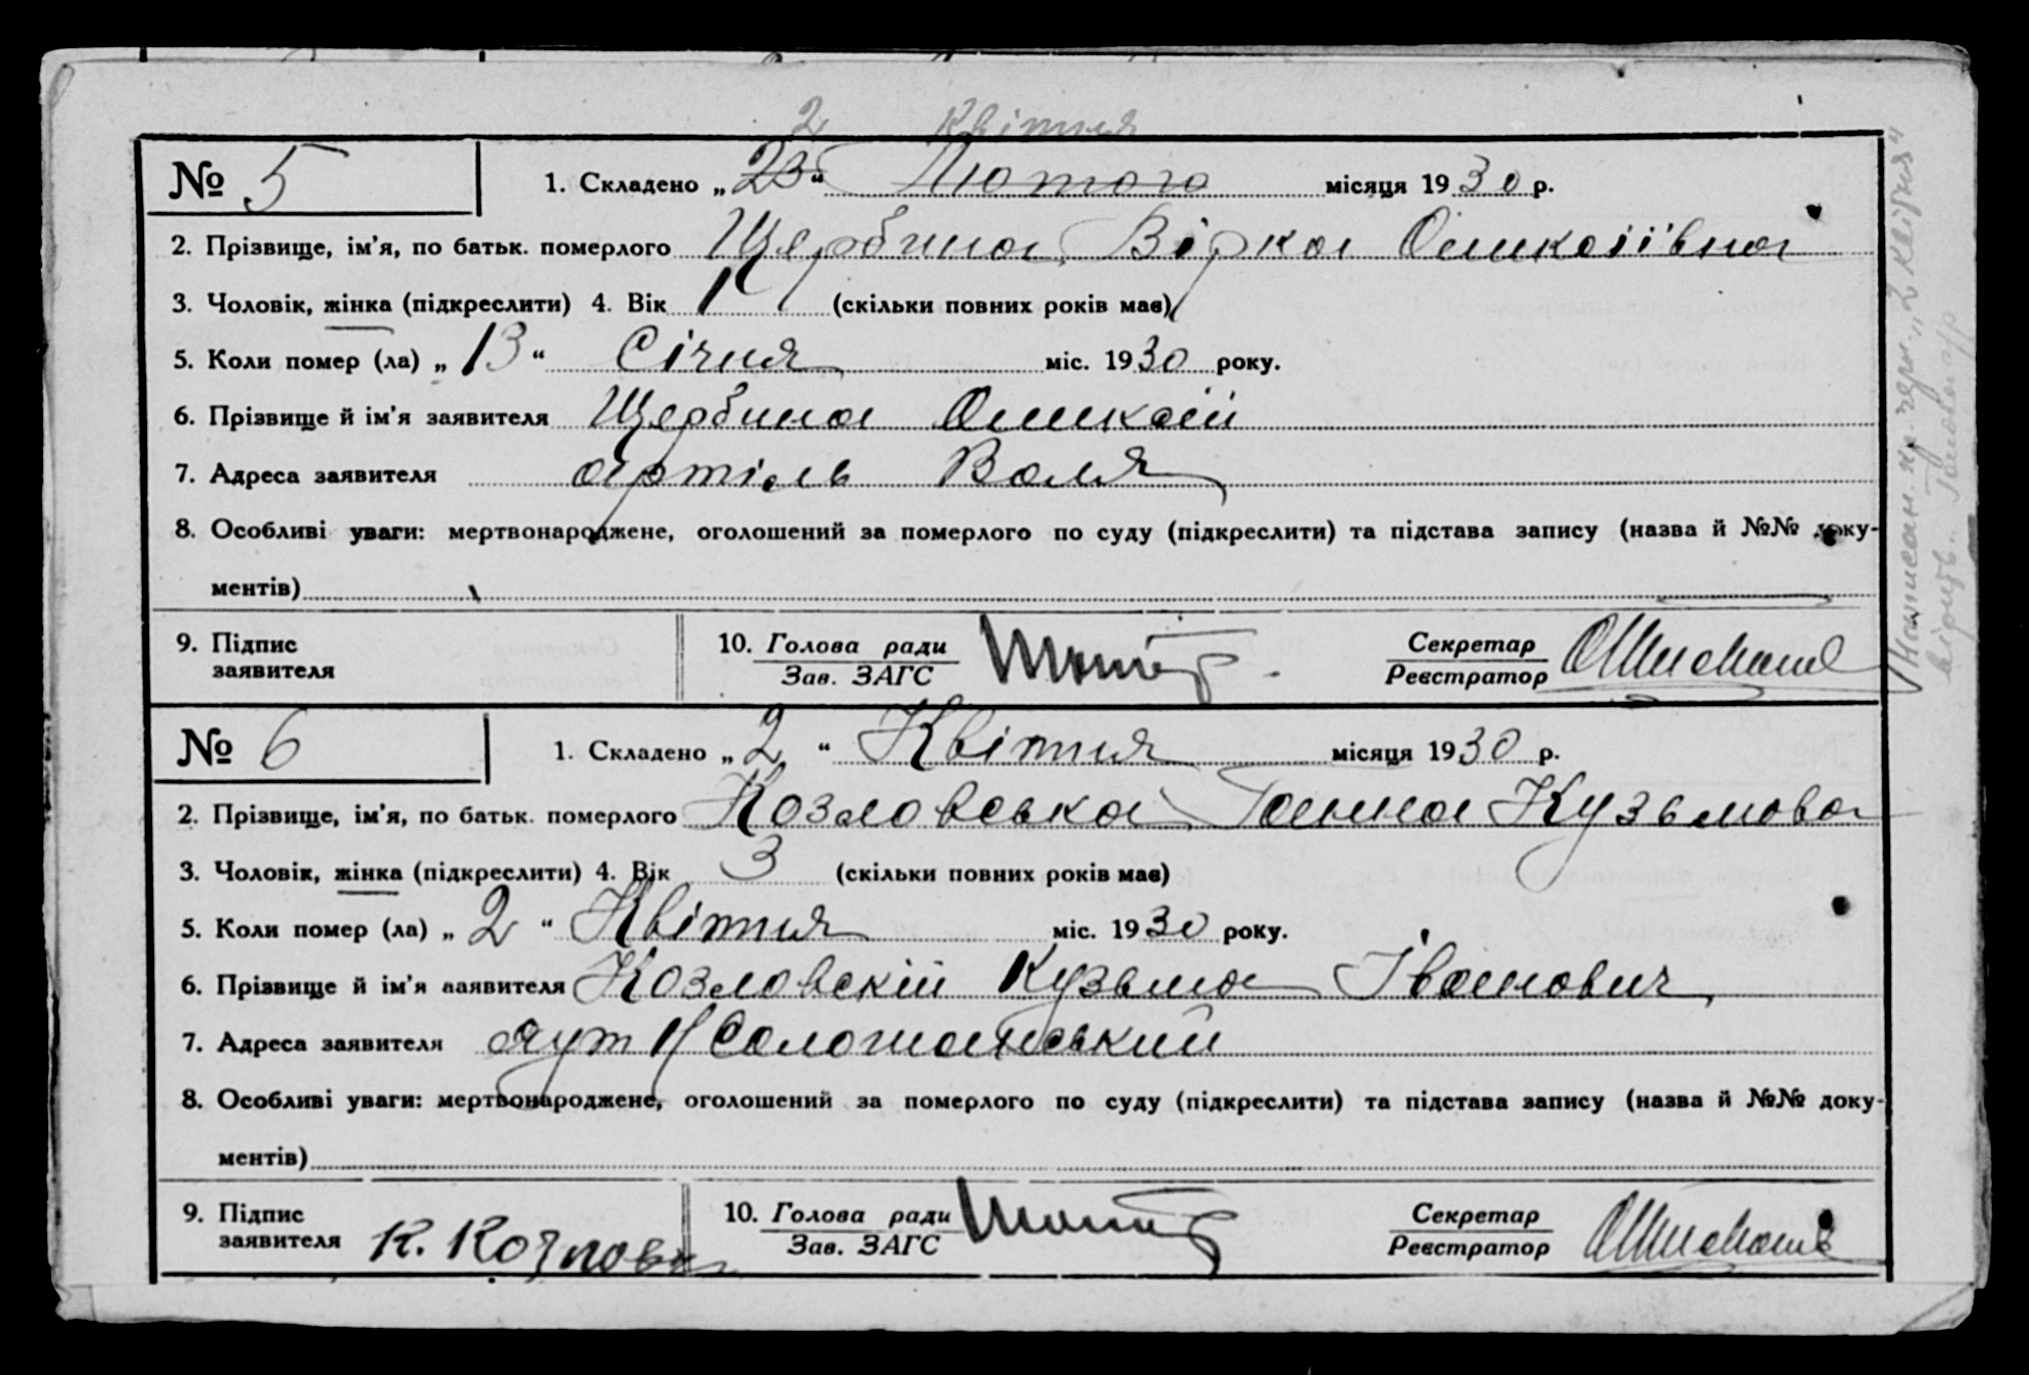 2 Квітня
№ 5 1. Складено „23“ Лютого місяця 1930 р.
2. Прізвище, ім'я, по батьк. померлого Щербина Вірка Оликсіївна
3. Чоловік, жінка (підкреслити) 4. Вік 1 (скільки повних років має)
5. Коли помер (ла) „13“ Січня міс. 1930 року.
6. Прізвище й ім'я заявителя Щербина Оликсій
7. Адреса заявителя артіль Воля
8. Особливі уваги: мертвонароджене, оголошений за померлого по суду (підкреслити) та підстава запису (назва й №№ доку-
ментів)
9. Підпис заявителя 10. Голова ради Зав. ЗАГС Секретар Реєстратор
№ 6 1. Складено „2“ Квітня місяця 1930 р.
2. Прізвище, ім'я, по батьк. померлого Козловська Ганна Кузьмова
3. Чоловік, жінка (підкреслити) 4. Вік 3 (скільки повних років має)
5. Коли помер (ла) „2“ Квітня міс. 1930 року.
6. Прізвище й ім'я заявителя Козловскій Кузьма Іванович
7. Адреса заявителя
8. Особливі уваги: мертвонароджене, оголошений за померлого по суду (підкреслити) та підстава запису (назва й №№ доку-
ментів)
9. Підпис заявителя К. 10. Голова ради Зав. ЗАГС Секретар Реєстратор
„2 Квітня“